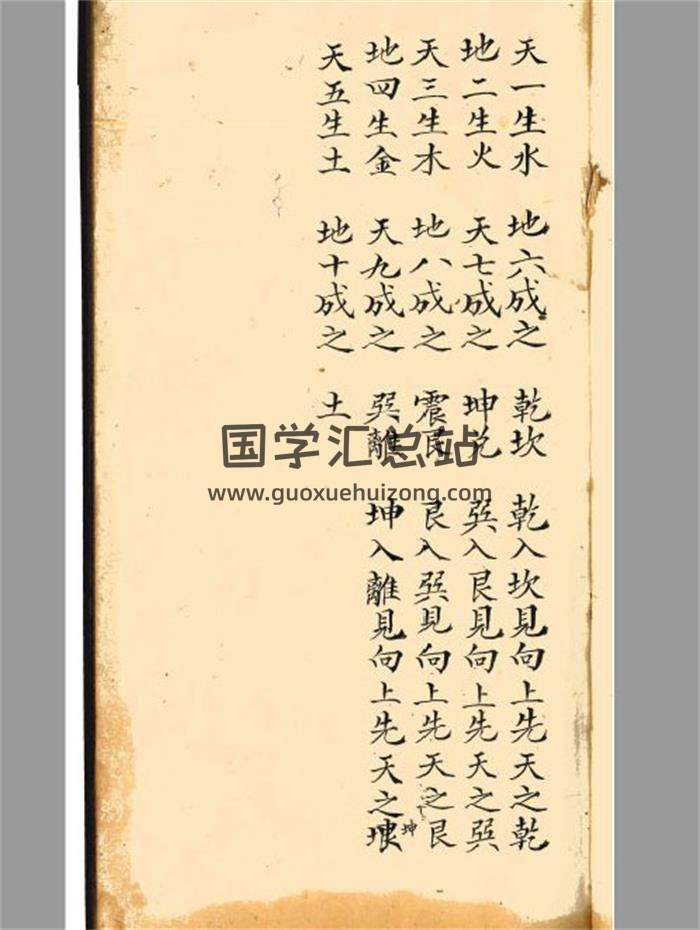 天一生水 地六成之 乾坎 乾入坎見向上先天之乾
地二生火 天七成之 坤兑 巽入艮見向上先天之巽
天三生木 地八成之 震艮 艮入巽見向上先天之艮
地四生金 天九成之 巽離 坤入離見向上先天之坤
坤
天五生土 地十成之 土
国学汇总站
www.guoxuehuizong.com